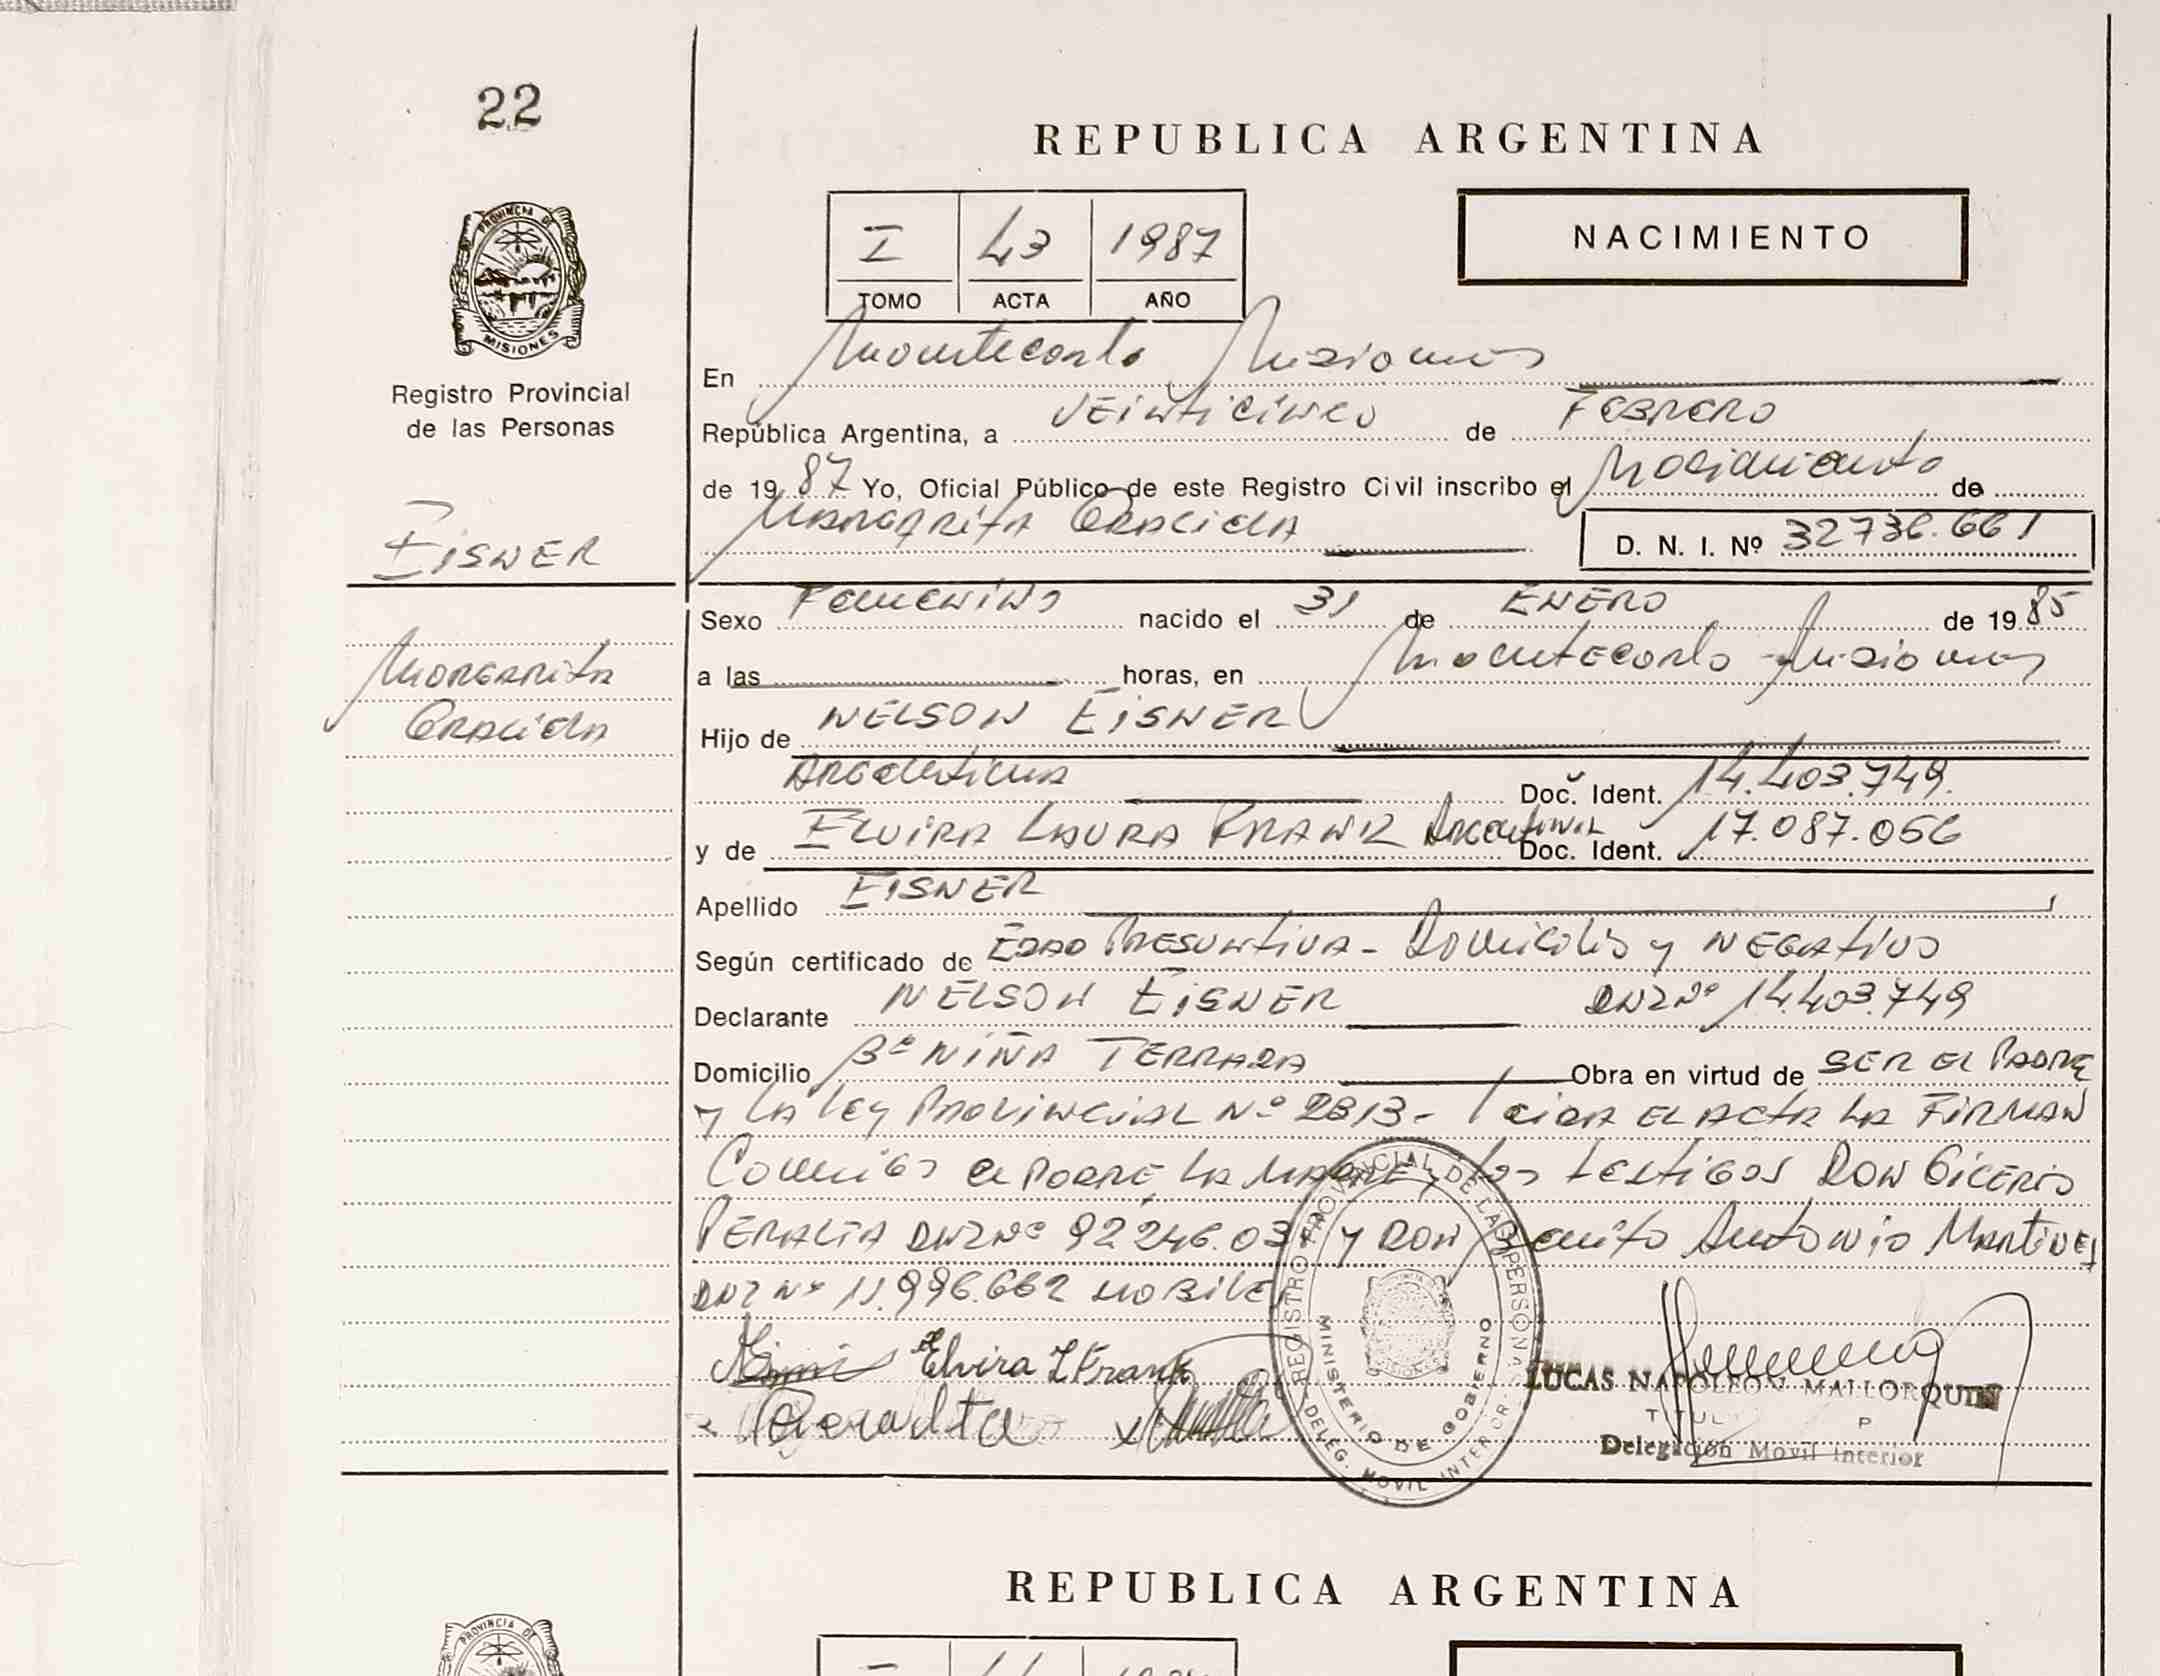 22
REPUBLICA ARGENTINA
PROVINCIA DE
MISIONES
I 43 1987
TOMO ACTA AÑO
NACIMIENTO
Registro Provincial
de las Personas
En Montecarlo Misiones
República Argentina, a VEINTICINCO de FEBRERO
de 1987 Yo, Oficial Público de este Registro Civil inscribo el Nacimiento de
MARGARITA GRACIELA
D. N. I. Nº 32736.661
EISNER
MARGARITA
GRACIELA
Sexo Femenino nacido el 31 de ENERO de 1985
a las horas, en Montecarlo - Misiones
Hijo de NELSON EISNER
Argentina Doc. Ident. 14.403.749.
y de ELVIRA LAURA FRANK Argentina Doc. Ident. 17.087.056
Apellido EISNER
Según certificado de EDAD PRESUNTIVA - Domicilio y NEGATIVO
Declarante NELSON EISNER DNI Nº 14.403.749
Domicilio Bº NIÑA TERRADA Obra en virtud de SER EL PADRE
y LA LEY PROVINCIAL Nº 2813 - Leida EL ACTA LA FIRMAN
Conmigo el PADRE, LA MADRE y los testigos DON GICERIO
PERALTA DNI Nº 92.246.03 y DON Benito Antonio Martinez
DNI Nº 11.996.662
Elvira L Frank
Peralta
REGISTRO PROVINCIAL DE LAS PERSONAS
MINISTERIO DE GOBIERNO
DELEG. MOVIL INTERIOR
LUCAS NAPOLEON MALLORQUIN
Delegación Movil Interior
REPUBLICA ARGENTINA
PROVINCIA DE